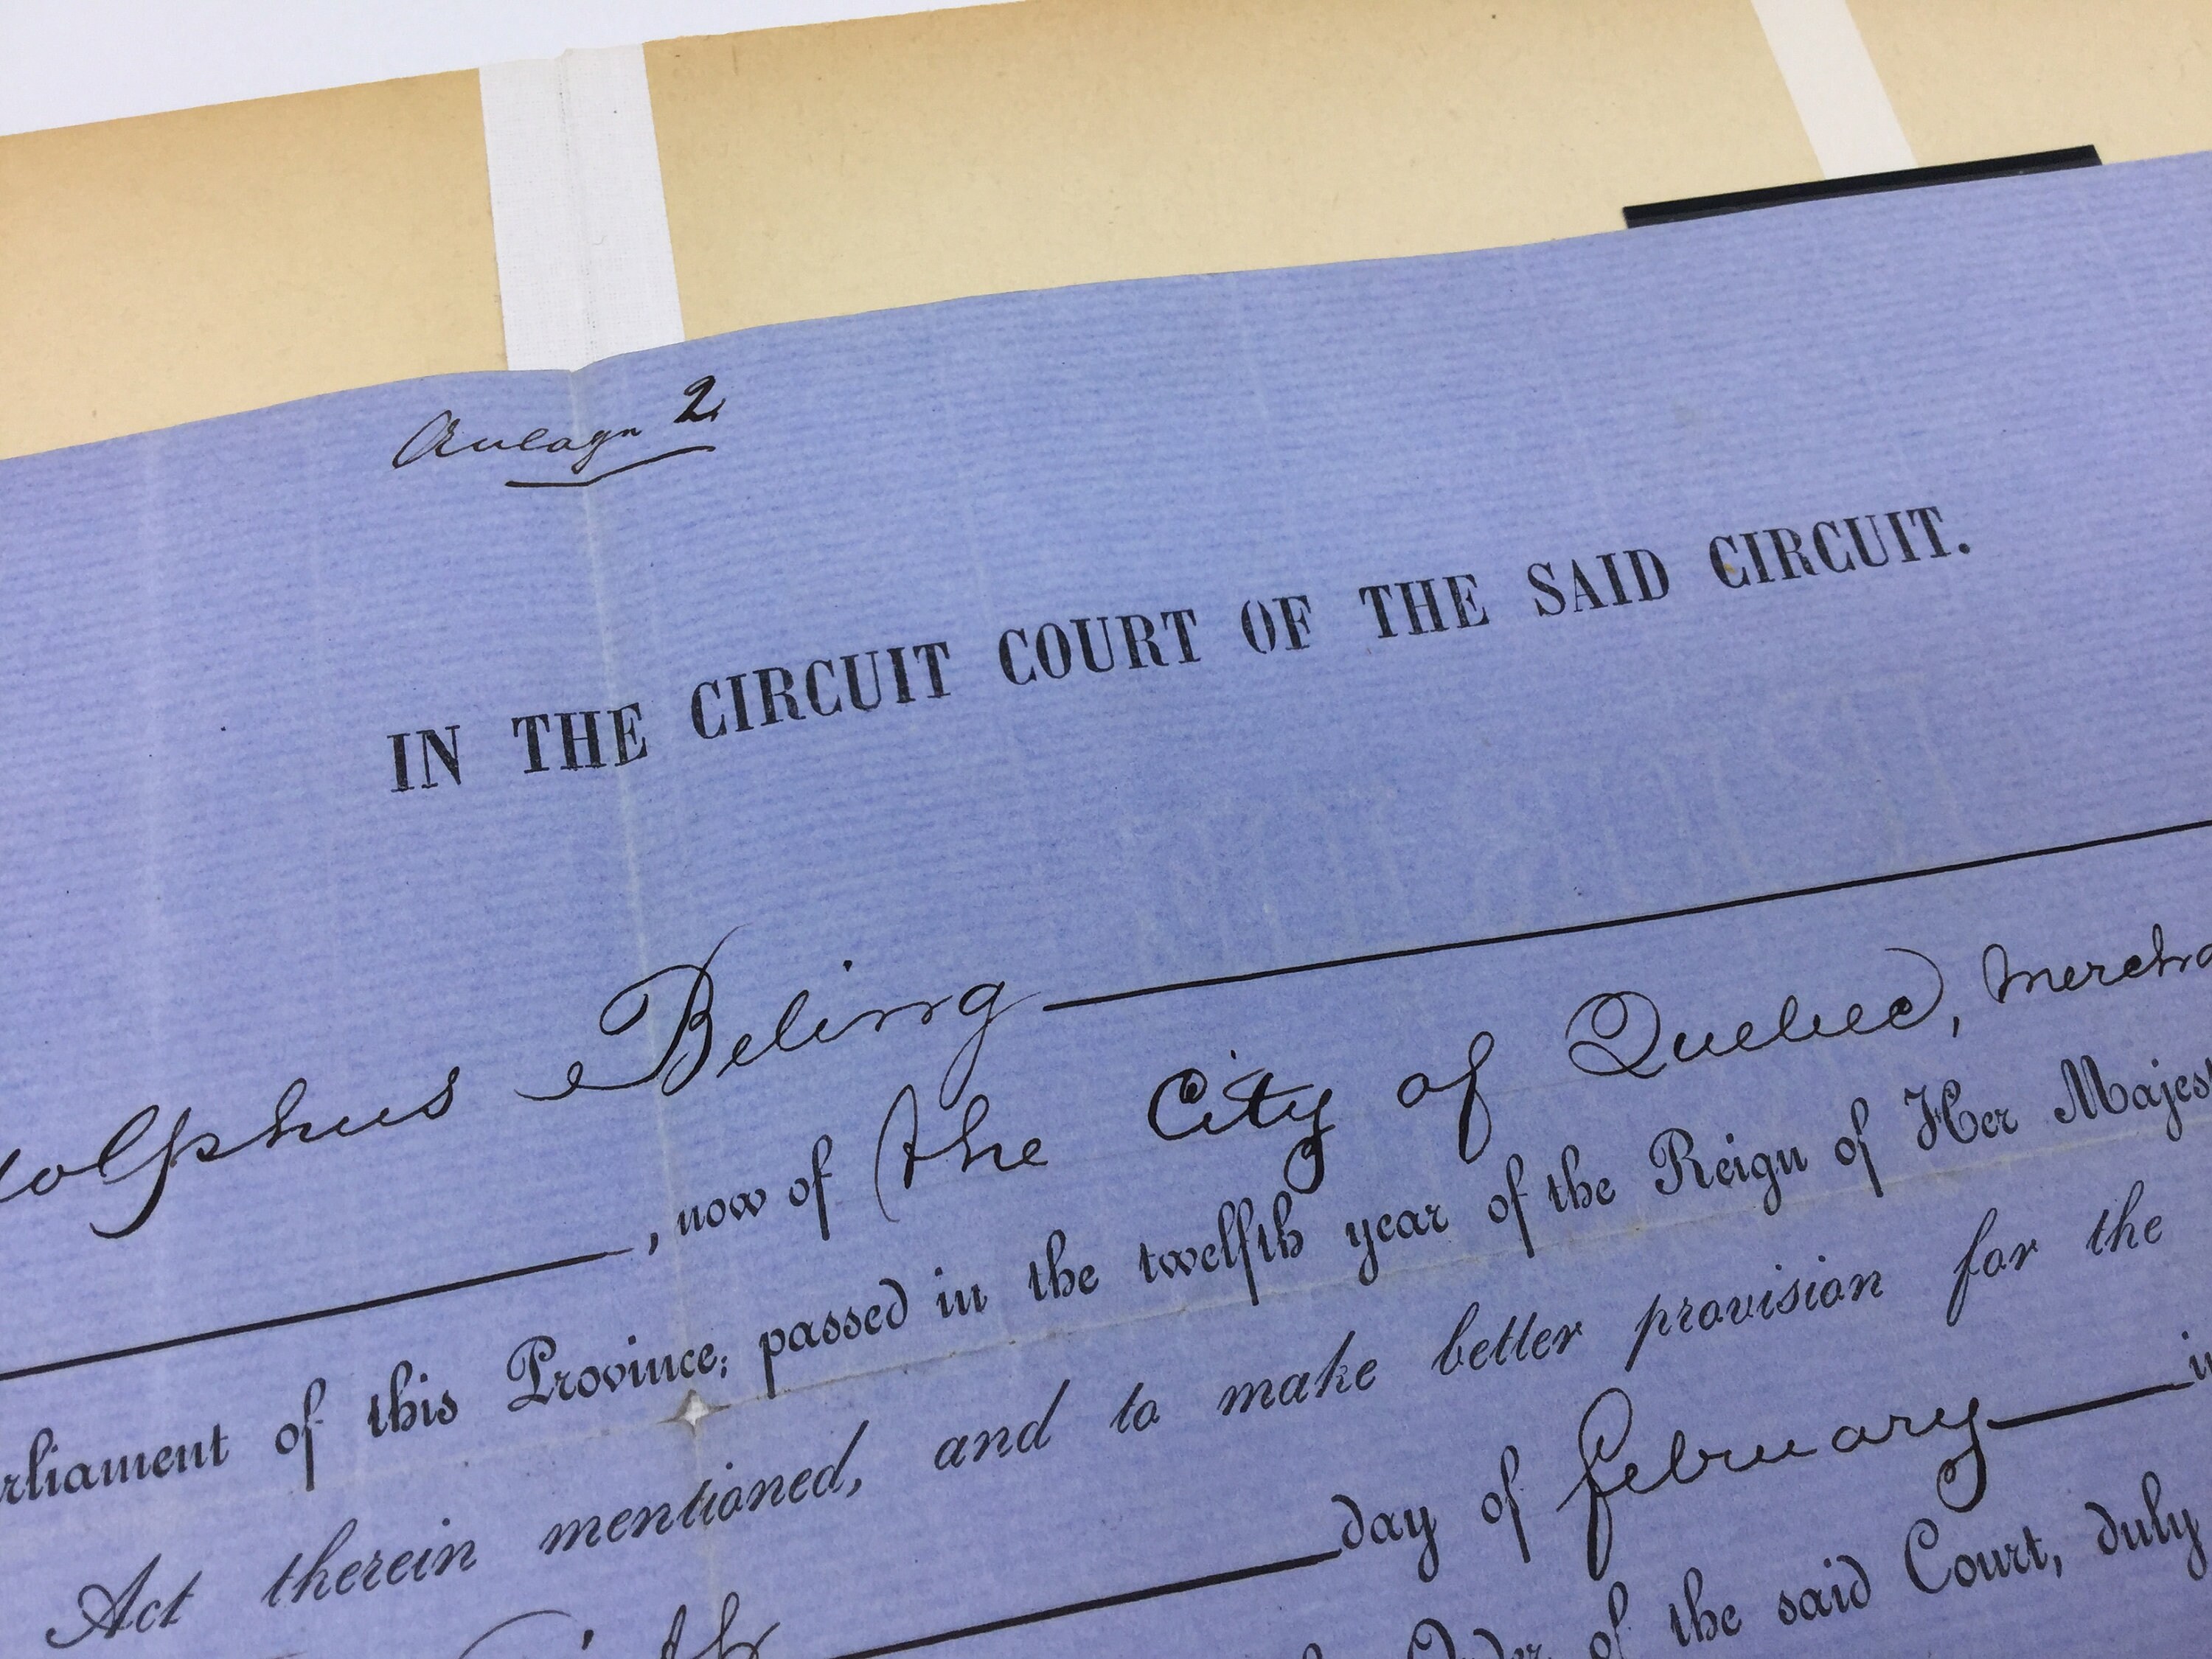 2
IN THE CIRCUIT COURT OF THE SAID CIRCUIT.
olphus Beling
, now of the City of Quebec, Mercha
rliament of this Province, passed in the twelfth year of the Reign of Her Majest
Act therein mentioned, and to make better provision for the
day of February i
Order of the said Court, duly